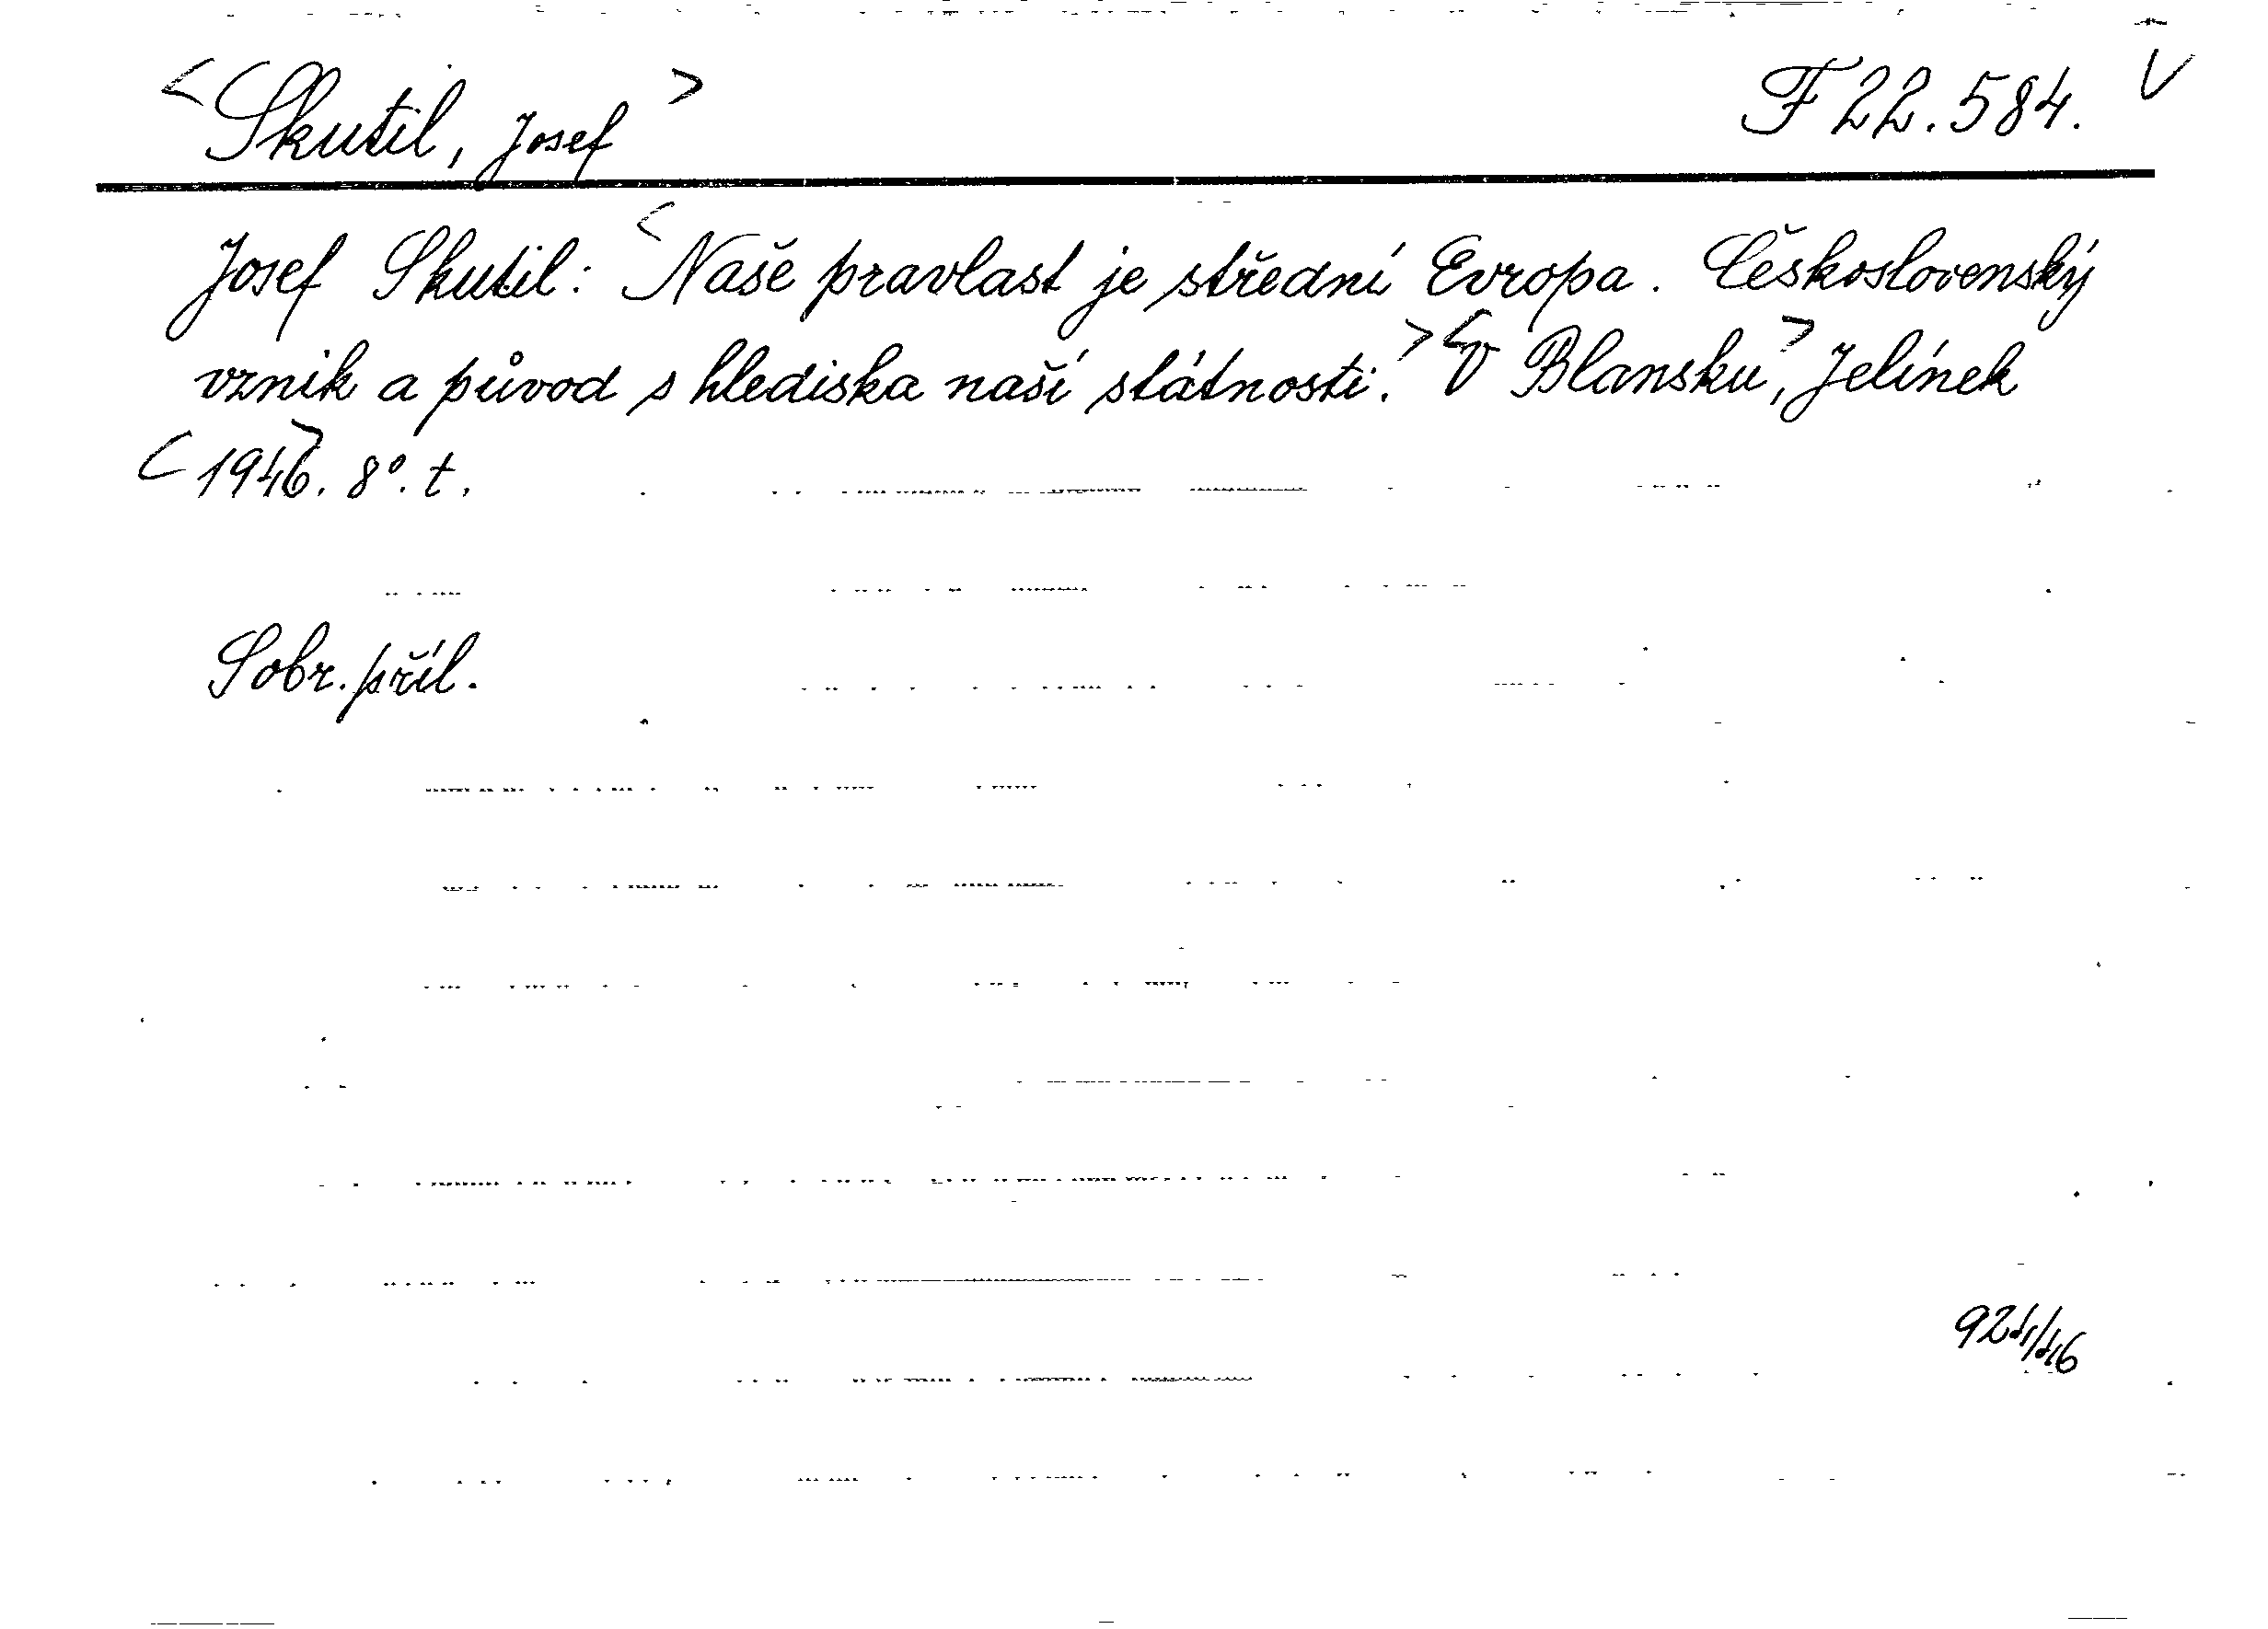 <Skutil, Josef> F 22.584. V
Josef Skutil: <Naše pravlast je střední Evropa. Československý
vznik a původ s hlediska naší státnosti.> <V Blansku>, Jelínek
<1946>. 8°. t.
Sobr. příl.